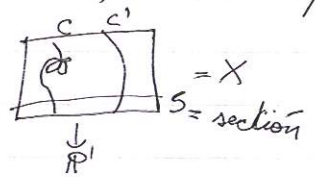 C C'
= X
S = section
↓
ℙ¹